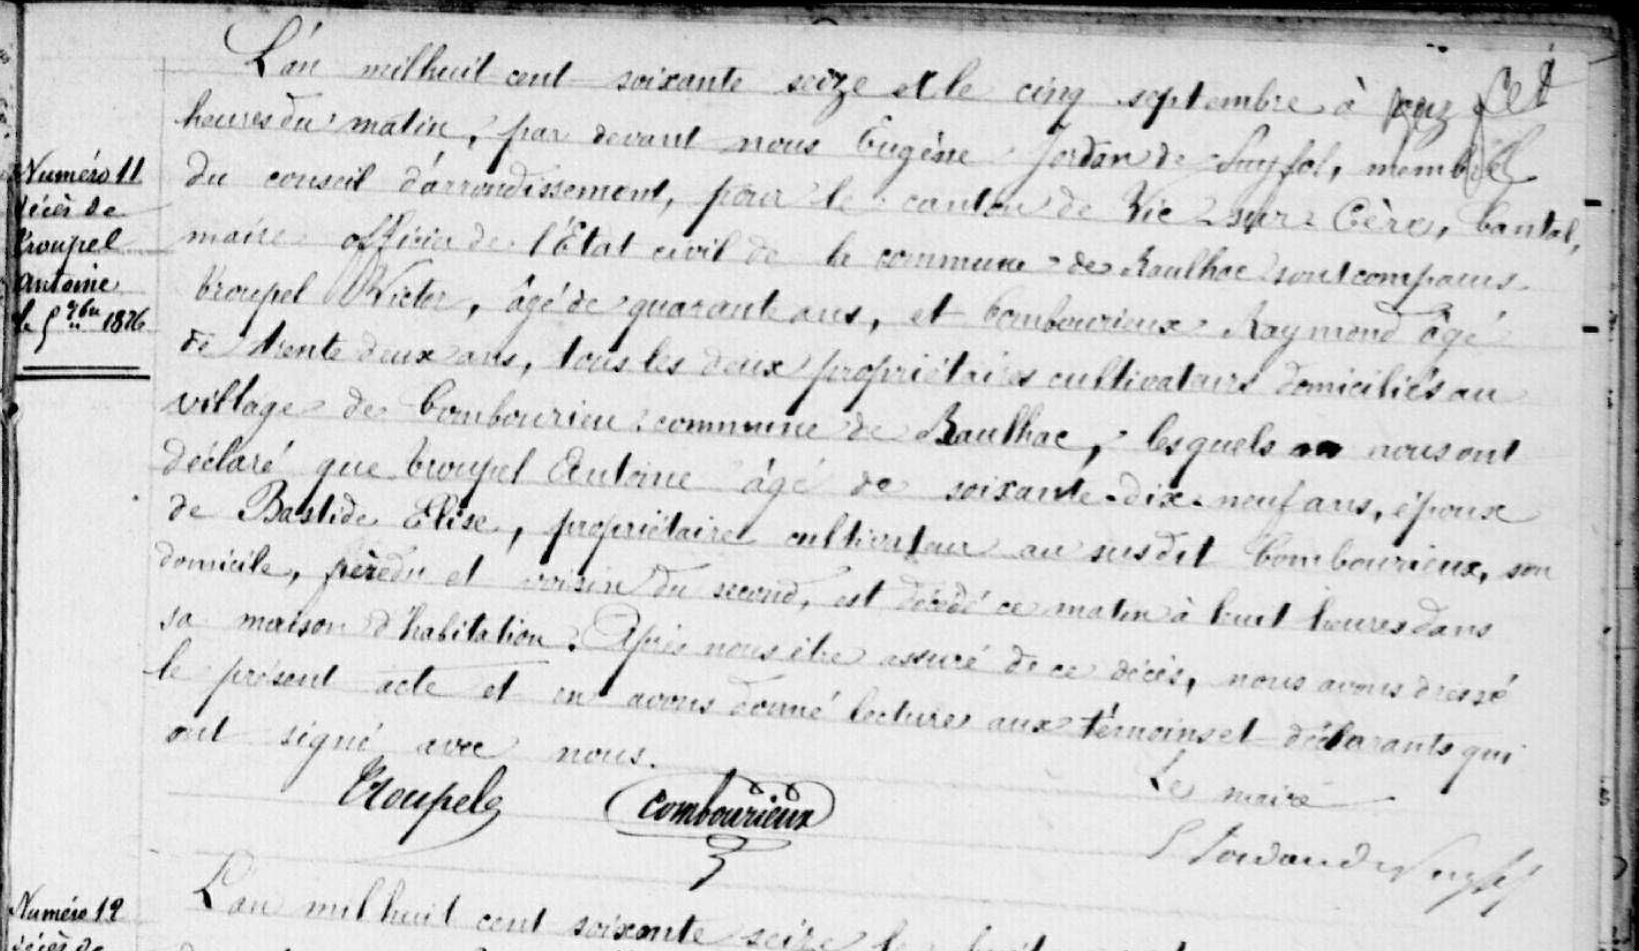 L'an mil huit cent soixante seize et le cinq septembre à
heures du matin, par devant nous Eugène Jordan de Puyfol, membre
Numéro 11
du conseil d'arrondissement, pour le canton de Vic-sur-Cère, Cantal,
décès de
maire officier de l'Etat civil de la commune de Raulhac sont comparus
Croupel
Croupel Victor, âgé de quarante ans, et Combourieux Raymond âgé
Antoine
le 5 7bre 1876
de trente deux ans, tous les deux propriétaires cultivateurs domiciliés au
village de Combourieu commune de Raulhac, lesquels nous ont
déclaré que Croupel Antoine âgé de soixante-dix-neuf ans, époux
de Bastide Elise, propriétaire cultivateur au susdit Combourieux, son
domicile, père du et voisin du second, est décédé ce matin à huit heures dans
sa maison d'habitation. Après nous être assuré de ce décès, nous avons dressé
le présent acte et en avons donné lecture aux témoins et déclarants qui
ont signé avec nous.
Le maire
Croupel
Combourieux
Numéro 12
L'an mil huit cent soixante seize le huit
décès de